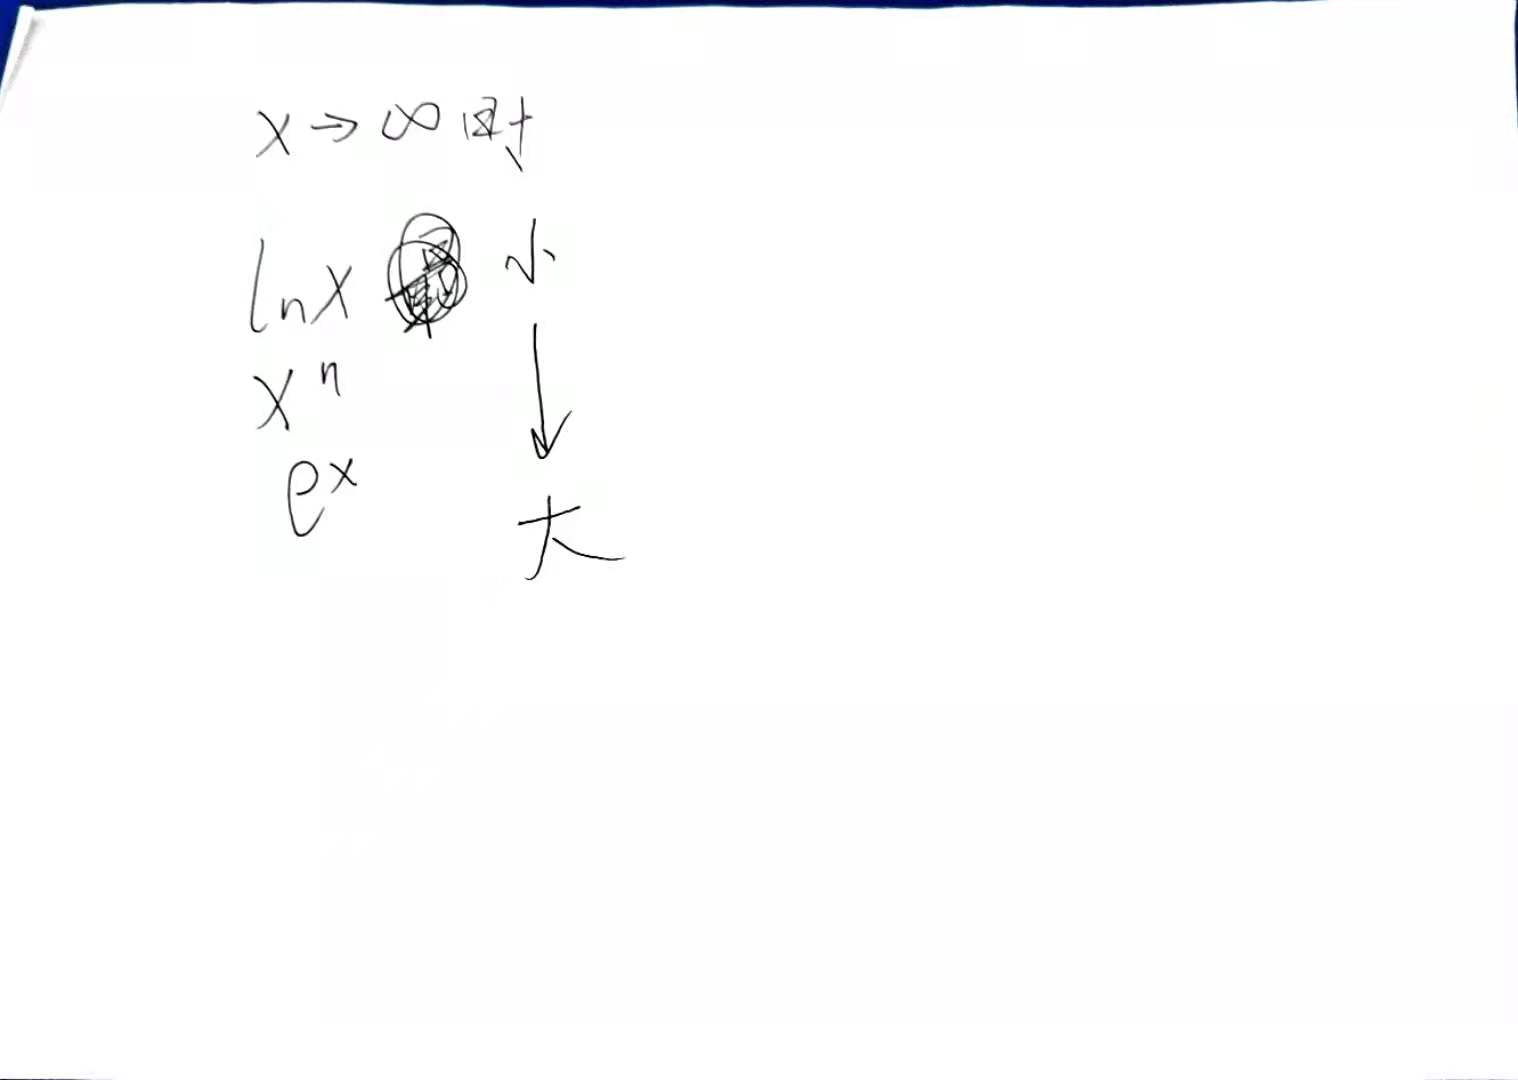 x→∞时
lnx 小
xⁿ
eˣ
大